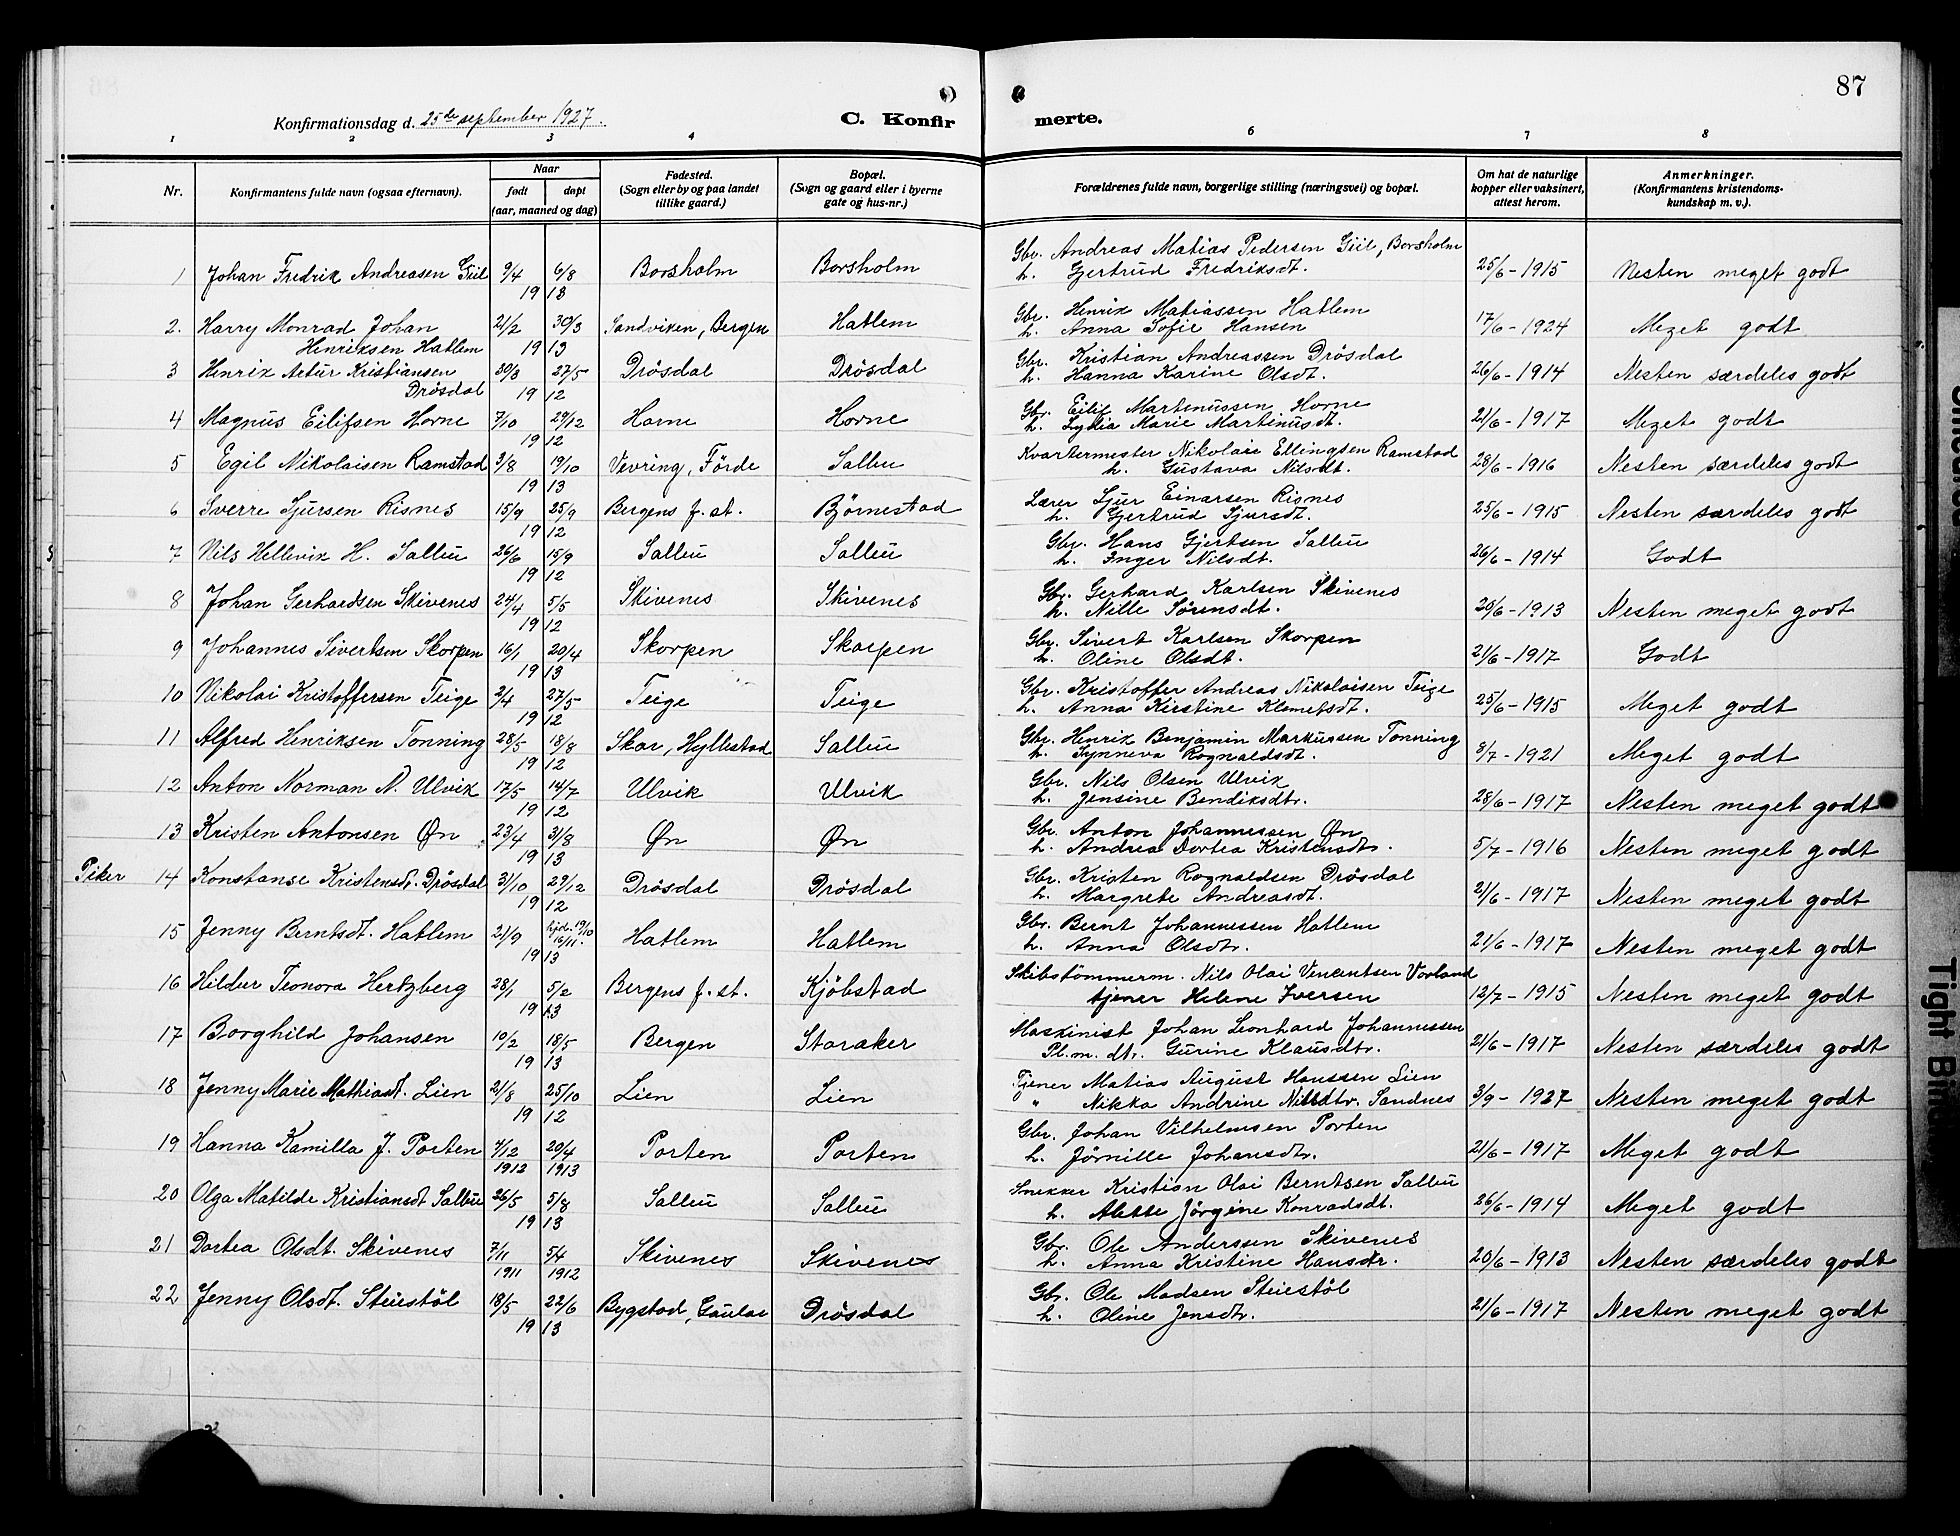 87
Konfirmationsdag d. 25de september 1927.
C. Konfirmerte.
1 2 3 4 6 7 8
Nr. Konfirmantens fulde navn (ogsaa efternavn). Naar født døpt (aar, maaned og dag) Fødested. (Sogn eller by og paa landet tillike gaard.) Bopæl. (Sogn og gaard eller i byerne gate og hus-nr.) Forældrenes fulde navn, borgerlige stilling (næringsvei) og bopæl. Om hat de naturlige kopper eller vaksinert, attest herom. Anmerkninger. (Konfirmantens kristendomskundskap m. v.).
1 Johan Fredrik Andreasen Giil 9/4 6/8 Borsholm Borsholm Gbr. Andreas Matias Pedersen Giil, Borsholm 25/6-1915 Nesten meget godt
19 13 h. Gertrud Fredriksdt.
2. Harry Monrad Johan 21/2 30/3 Sandviken, Bergen Hatlem Gbr. Henrik Matiassen Hatlem 17/6-1924 Meget godt
Henriksen Hatlem 19 13 h. Anna Sofie Hansen
3 Henrik Artur Kristiansen 30/3 27/5 Drösdal Drösdal Gbr. Kristian Andreassen Drösdal 26/6-1914 Nesten særdeles godt
Drösdal 19 12 h. Hanna Karine Olsdt.
4 Magnus Eilifsen Horne 7/10 29/12 Horne Horne Gbr. Eilif Martinussen Horne 21/6-1917 Meget godt
19 12 h. Lydia Marie Martinusdt.
5 Egil Nikolaisen Ramstad 3/8 19/10 Vevring, Förde Salbu Kvartermester Nikolai Ellingsen Ramstad 28/6-1916 Nesten særdeles godt
19 13 h. Gustava Nilsdt.
6 Sverre Sjursen Risnes 15/9 25/9 Bergens f. st. Björnestad Lærer Sjur Einarsen Risnes 25/6-1915 Nesten særdeles godt
19 12 h. Gjertrud Sjursdt.
7 Nils Hellevik H. Salbu 26/6 15/9 Salbu Salbu Gbr. Hans Gjertsen Salbu 26/6-1914 Godt
19 12 h. Inger Nilsdt.
8 Johan Gerhardsen Skivenes 24/4 5/5 Skivenes Skivenes Gbr. Gerhard Karlsen Skivenes 20/6-1913 Nesten meget godt
19 12 h. Nille Sörensdt.
9 Johannes Sivertsen Skorpen 16/1 20/4 Skorpen Skorpen Gbr. Sivert Karlsen Skorpen 21/6-1917 Godt
19 13 h. Oline Olsdt.
10 Nikolai Kristoffersen Teige 2/4 27/5 Teige Teige Gbr. Kristoffer Andreas Nikolaisen Teige 25/6-1915 Meget godt
19 12 h. Anna Kirstine Klemetsdt.
11 Alfred Henriksen Tonning 28/5 18/8 Skor, Hyllestad Salbu Gbr. Henrik Benjamin Markussen Tonning 8/7-1921 Meget godt
19 12 h. Synneva Rognaldsdt.
12 Anton Norman N. Ulvik 17/5 14/7 Ulvik Ulvik Gbr. Nils Olsen Ulvik 28/6-1917 Nesten meget godt
19 12 h. Jensine Bendiksdtr.
13 Kristen Antonsen Øn 23/4 31/8 Øn Øn Gbr. Anton Johannessen Øn 5/7-1916 Nesten meget godt
19 13 h. Andrea Dortea Kristensdtr.
Piker 14 Konstanse Kristensdt. Drösdal 31/10 29/12 Drösdal Drösdal Gbr. Kristen Rognaldsen Drösdal 21/6-1917 Nesten meget godt
19 12 h. Margrete Andreasdt.
15 Jenny Berntsdt. Hatlem 21/9 hjd. 19/10 16/11. Hatlem Hatlem Gbr. Bernt Johannessen Hatlem 21/6-1917 Nesten meget godt
19 13 h. Anna Olsdtr.
16 Hildur Teonora Hertzberg 28/1 5/2 Bergens f. st. Kjöbstad Skibstömmerm. Nils Olai Vincentsen Vorland 12/7-1915 Nesten meget godt
19 13 tjener Helene Iversen
17 Borghild Johansen 10/2 18/5 Bergen Storaker Maskinist Johan Leonhard Johannessen 21/6-1917 Nesten særdeles godt
19 13 Pl.m. dtr. Gurine Klausdtr.
18 Jenny Marie Mathiasdt. Lien 21/8 25/10 Lien Lien Tjener Matias August Hanssen Lien 3/9-1927 Nesten meget godt
19 12 " Nikka Andrine Nilsdtr. Sandnes
19 Hanna Kamilla J. Porten 7/12 20/4 Porten Porten Gbr. Johan Vilhelmsen Porten 21/6-1917 Meget godt
1912 1913 h. Jörnille Johansdtr.
20 Olga Matilde Kristiansdt Salbu 26/5 5/8 Salbu Salbu Snekker Kristian Olai Berntsen Salbu 26/6-1914 Meget godt
19 13 h. Alette Jörgine Konradsdt.
21 Dortea Olsdt. Skivenes 7/11 5/4 Skivenes Skivenes Gbr. Ole Anderssen Skivenes 20/6-1913 Nesten særdeles godt
1911 1912 h. Anna Kristine Hansdtr.
22 Jenny Olsdt. Steiestöl 18/5 22/6 Bygstad, Gaular Drösdal Gbr. Ole Madsen Steiestöl 21/6-1917 Nesten meget godt
19 13 h. Oline Jensdtr.
Tight Bind